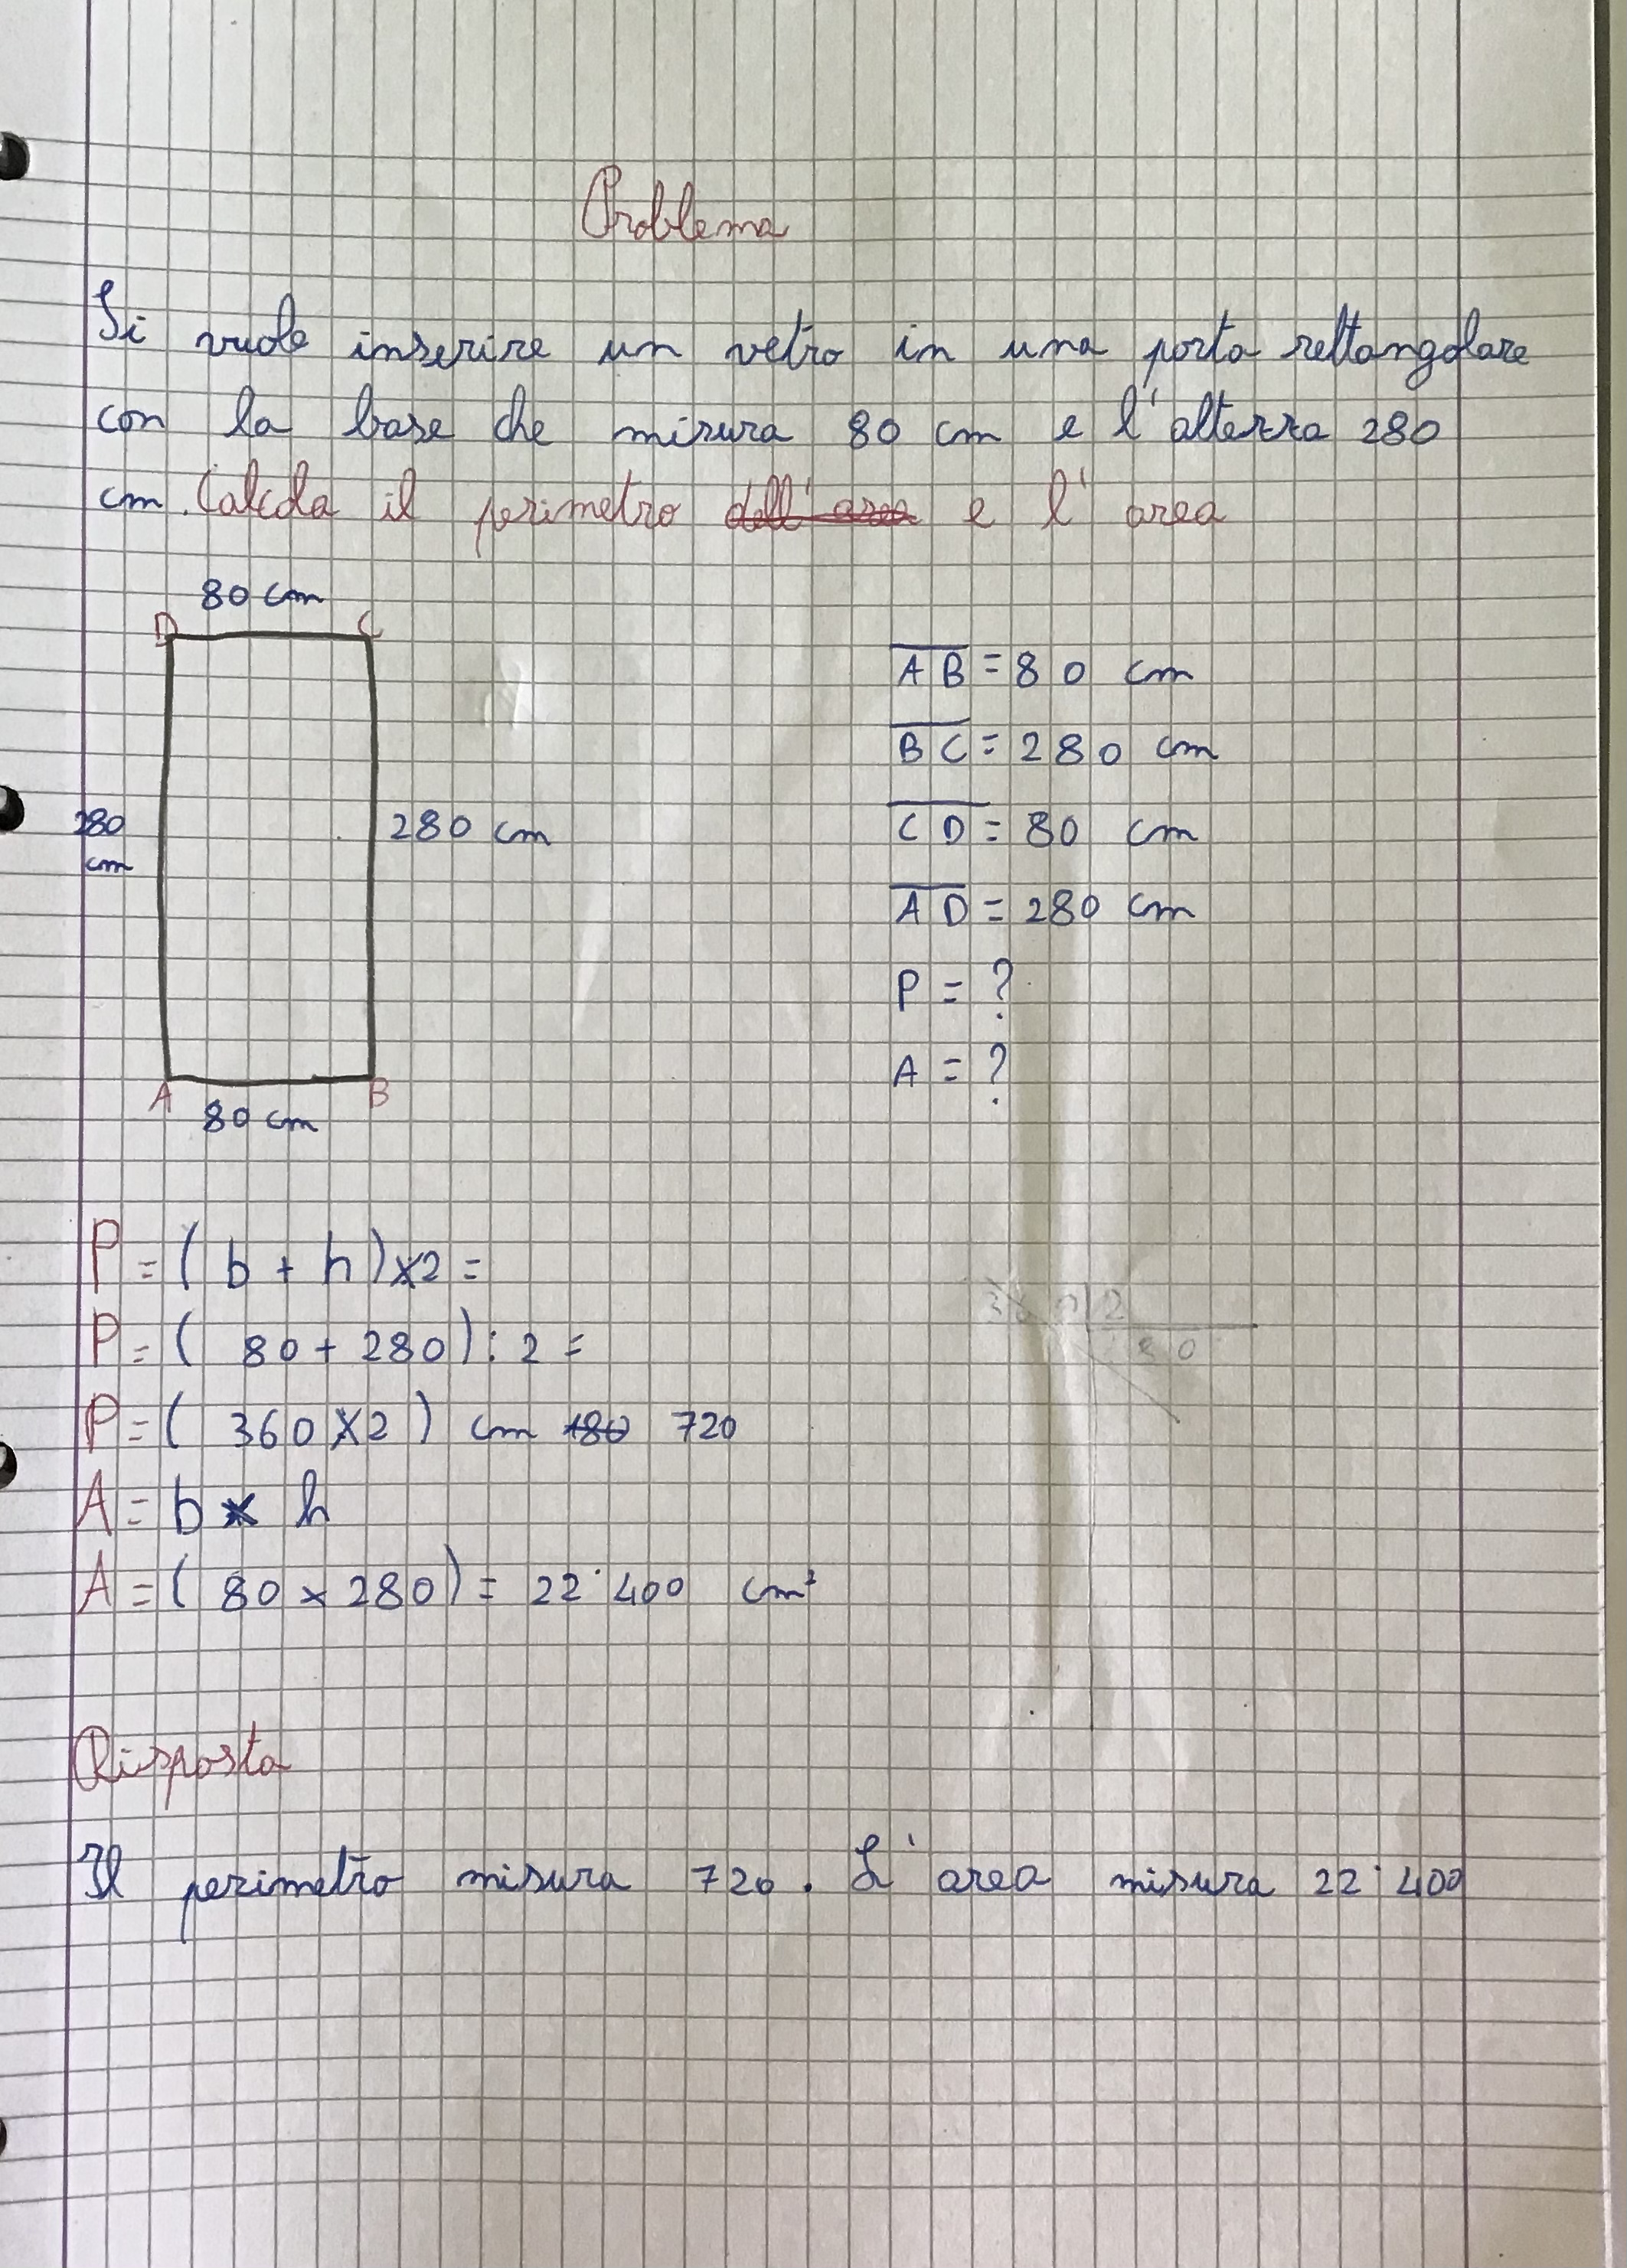 Problema
Si vuole inserire un vetro in una porta rettangolare
con la base che misura 80 cm e l'altezza 280
cm. Calcola il perimetro dell'area e l'area
80 cm
D C
280
cm
280 cm
A B
80 cm
AB = 80 cm
BC = 280 cm
CD = 80 cm
AD = 280 cm
P = ?
A = ?
P = (b + h) x2 =
P = ( 80 + 280) : 2 =
360 2
180
P = ( 360 x2 ) cm 180 720
A = b x h
A = ( 80 x 280) = 22˙400 cm²
Risposta
Il perimetro misura 720. L'area misura 22˙400